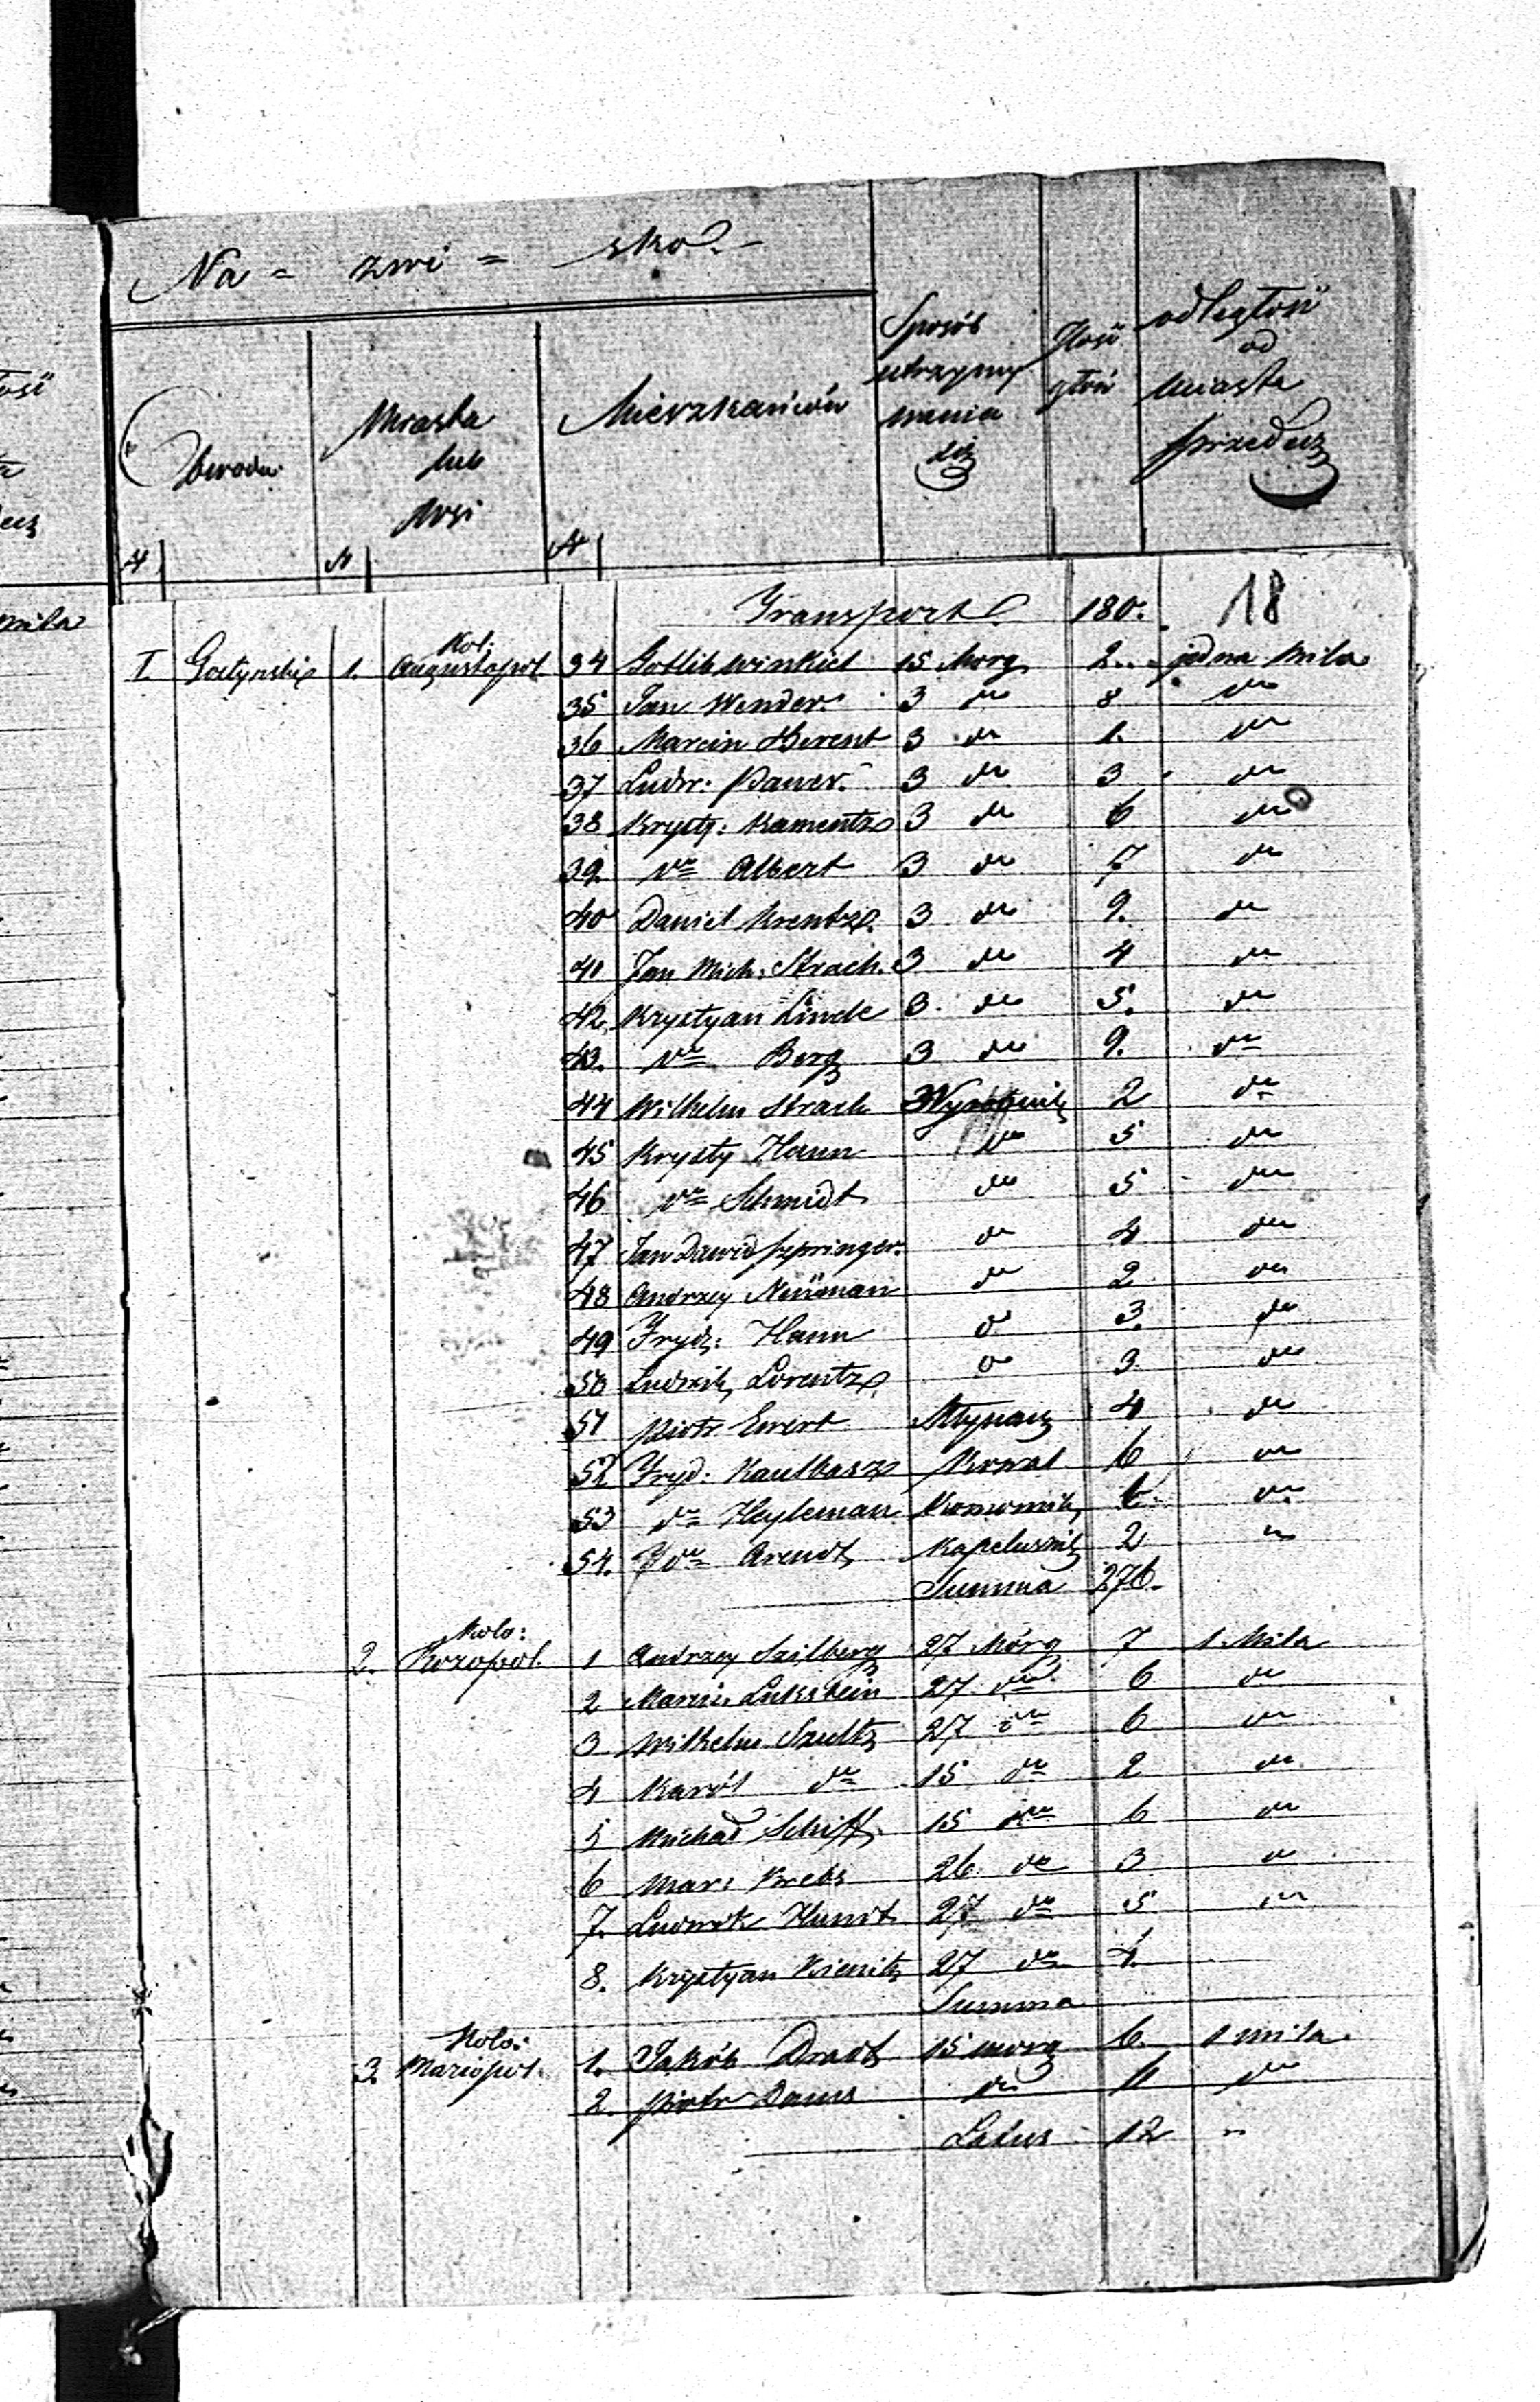 Na = zwi = sko
Obwodu
Miasta
lub
Wsi
Mieszkańców
Sposób
utrzymy
wania
się
Jlość
głów
odległość
od
Miasta
Przedecz
N N N
Transport 180. 18
I. Gostynski 1. Kol: Augustopol 34 Gotlib Winkiel 15 Morg 2 jedna Mila
35 Jan Wender 3 do 8 do
36 Marcin Berent 3 do 1. do
37 Ludw: Pauer 3 do 3 do
38 Kryst: Kamentz 3 do 6 do
39 do Albert 3 do 7 do
40 Daniel Krentz 3 do 9. do
41 Jan Mich: Strach. 3 do 4 do
42. Krystyan Linde 3. do 5. do
43. do Berg 3 do 9. do
44 Wilhelm Strach Wyrobnik 2 do
45 Krysty Hann do 5 do
46 do Schmidt do 5 do
47 Jan Dawid Szpringer. do 4 do
48 Andrzey Neüman do 2 do
49 Fryd: Hann do 3. do
50 Ludwik Lorentz do 3. do
51 Piotr Ewert Młynarz 4 do
52 Fryd: Kaulbarz Kowal 6 do
53 do Heyleman Komornik do
54. do Arendt Kapelusznik 2
Summa 276.
2. Kolo: Rozopol 1 Andrzey Szilberg 27 Mórg 7 1 Mila
2 Marcin Lukstein 27 do 6 do
3 Wilhelm Szultz 27 do 6 do
4 Karól do 15 do 2 do
5 Michał Schiff 15 do 6 do
6 Mar: Krebs 26 do 3 do
7. Ludwik Hundt 27 do 5 do
8. Krystyan Kienitz 27 do 4.
Summa
3. Kolo: Mariopol. 1. Jakób Dradt 15 morg 6. 1 mila
2. Piotr Daus do do
Latus 12